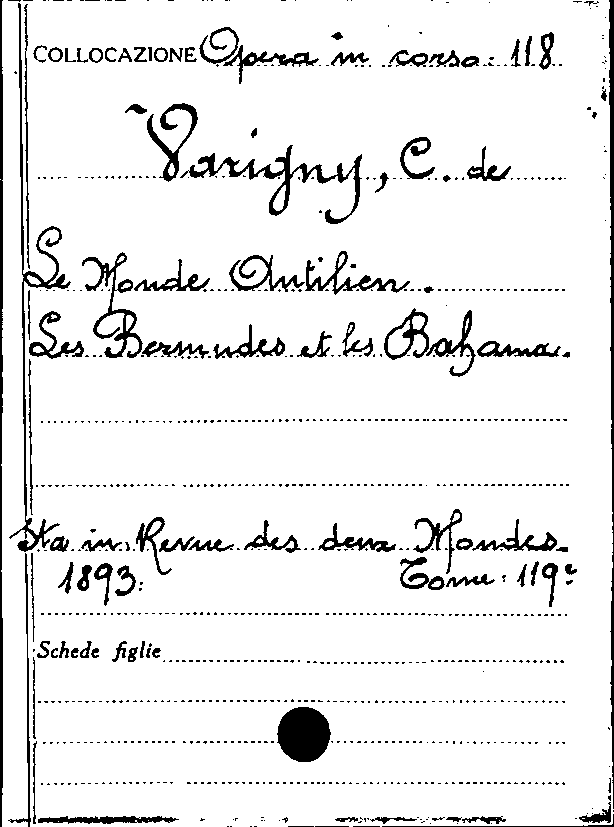 COLLOCAZIONE Opera in corso. 118
Varigny, C. de
Le Monde Antilien.
Les Bermudes et les Bahama.
Sta in Revue des deux Mondes.
1893. Tome 119e
Schede figlie